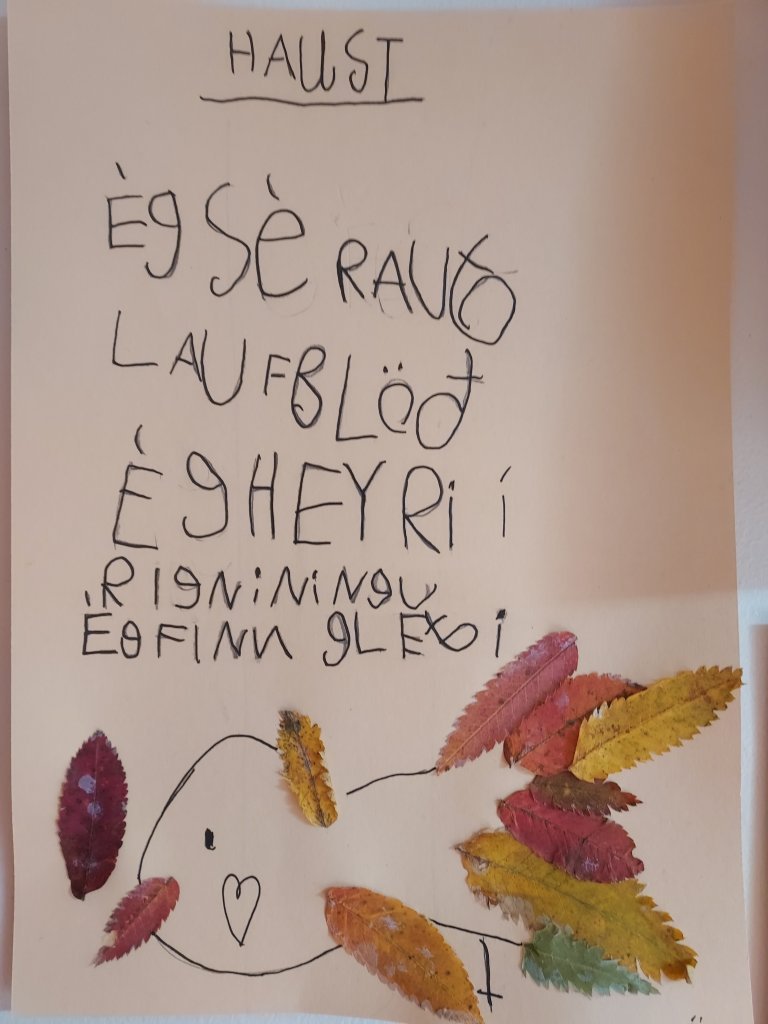 HAUST
Èg Sè RAUð
LAUFBLöð
Èg HEYRi í
RIgNiNiNgU
Ég FINN gLEði